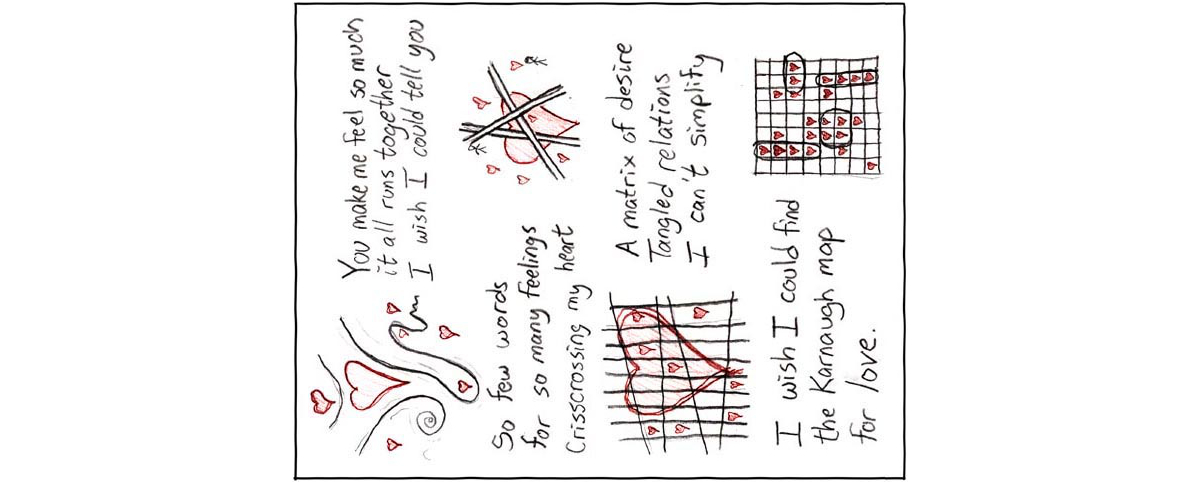 You make me feel so much
it all runs together
I wish I could tell you
So few words
for so many feelings
Crisscrossing my heart
A matrix of desire
Tangled relations
I can't simplify
I wish I could find
the Karnaugh map
for love.